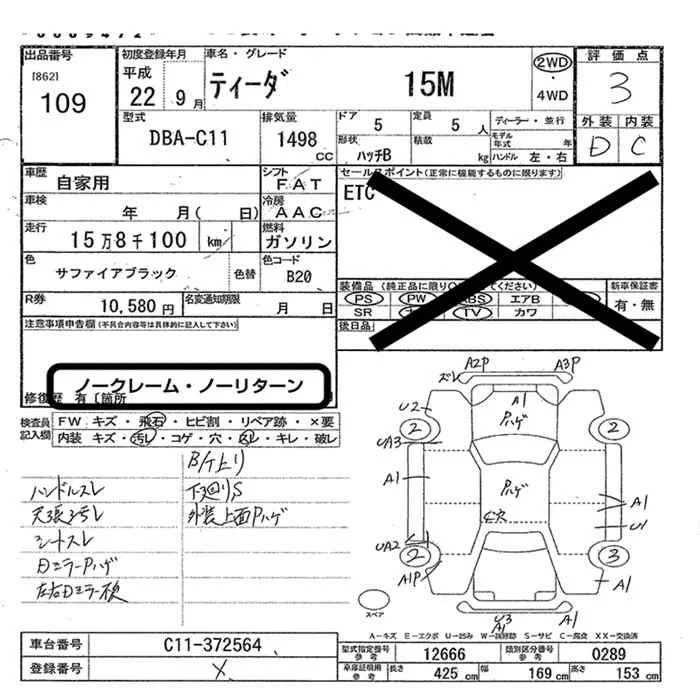 出品番号
[862]
109
初度登録年月
平成
22 9月
車名・グレード
ティーダ 15M
2WD
・
4WD
評価点
3
外装 内装
D C
型式
DBA-C11
排気量
1498
CC
ドア 5
定員 5 人
ディーラー・並行
形状
ハッチB
積載
kg
モデル年式 年
ハンドル 左・右
車歴
自家用
シフト
FAT
車検
年 月( 日)
冷房
AAC
走行
15万8千100 km
燃料
ガソリン
色
サファイアブラック
色替
色コード
B20
R券
10,580円
名変通知期限
月 日
セールスポイント(正常に機能するものに限ります)
ETC
新車保証書
有・無
PS PW ABS エアB
SR TV カワ
後日品
注意事項申告欄(不具合内容等は具体的に記入して下さい)
ノークレーム・ノーリターン
修復歴 有 〔箇所
検査員
記入欄
FW キズ・飛石・ヒビ割・リペア跡・×要
内装 キズ・汚レ・コゲ・穴・スレ・キレ・破レ
B/ケ上リ
ハンドルスレ
下廻りS
天張ヨゴレ
外装上面Pハゲ
シートスレ
DミラーPハゲ
左右Dミラー検
ズレ A2P A3P
A1
Pハゲ
U2
2 2
UA3
A1
Pハゲ
A1
U1
UA2
2 3
A1P
A1
U3
A1
A1
スペア
A-キズ E-エクボ U-凹み W-補修跡 S-サビ C-腐食 XX-交換済
車台番号
C11-372564
登録番号
X
型式指定番号
参考
12666
類別区分番号
参考
0289
車庫証明用
参考
長さ 425 cm
幅 169 cm
高さ 153 cm